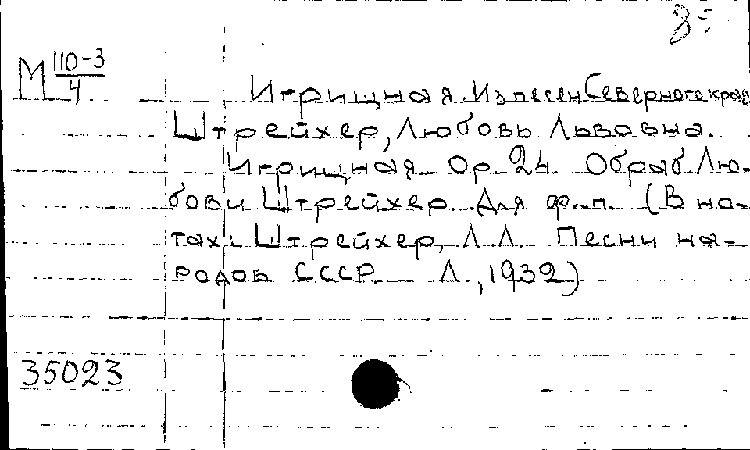 М 110-3
4
Игрищная. Из песен Северного края
Штрейхер, Любовь Львовна.
Игрищная. Op. 24. Обраб. Лю-
бови Штрейхер. Для ф.-п. (В но-
тах: Штрейхер, Л. Л. Песни на-
родов СССР. Л., 1932)
35023